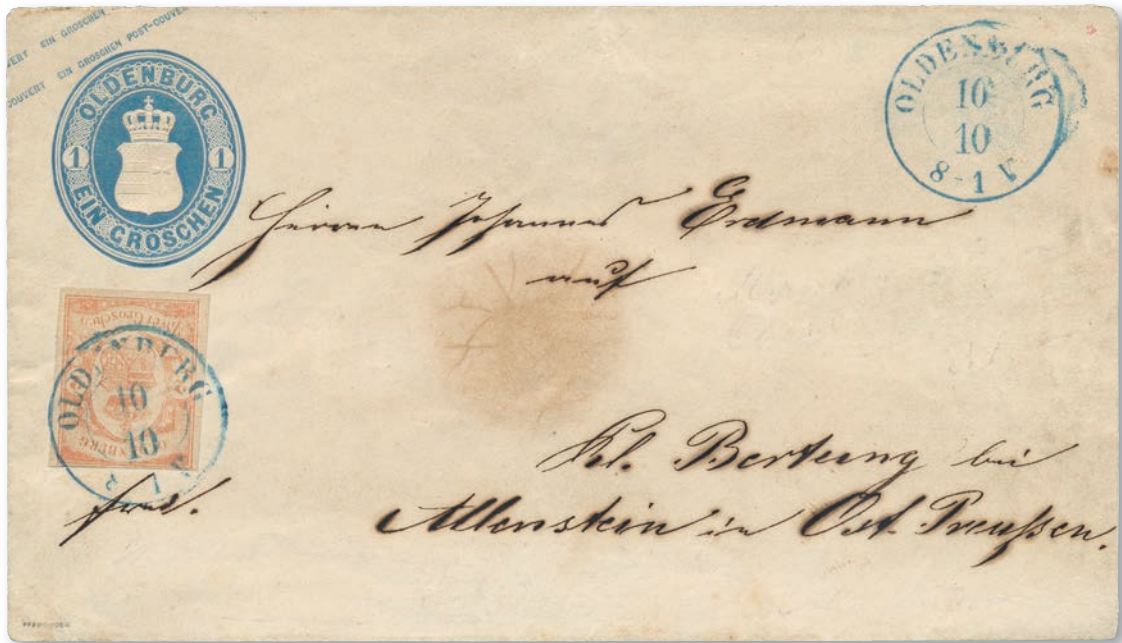 EIN GROSCHEN
COUVERT EIN GROSCHEN POST-COUVERT
OLDENBURG
1 1
EIN GROSCHEN
OLDENBURG
10
10
8-1 V
Herrn Johannes Erdmann
auf
Zwei Groschen
OLDENBURG
OLDENBURG
10
10
Kl. Bertung bei
Allenstein in Ost-Preußen.